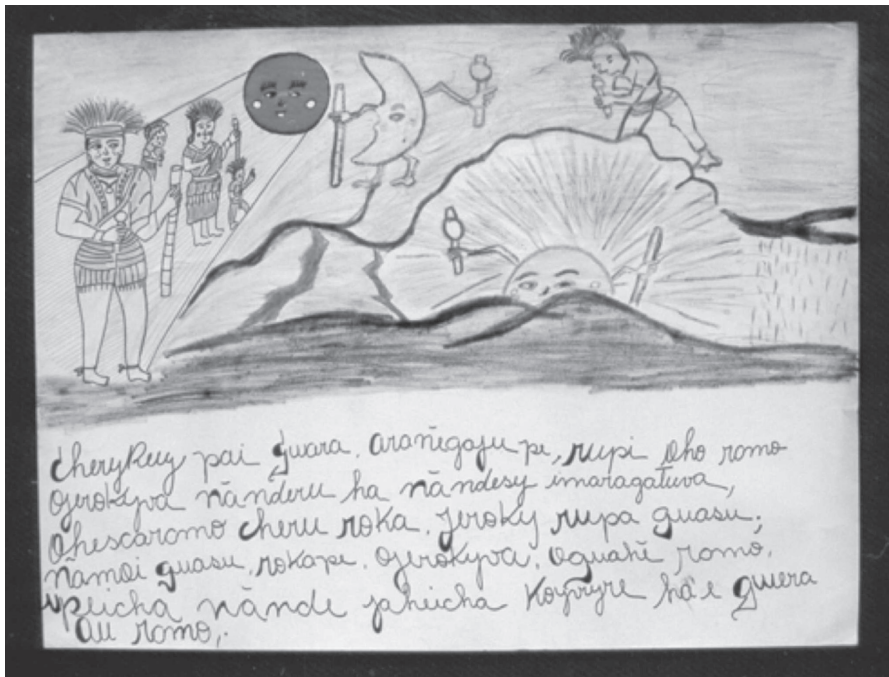 cheryKeey pai guara, arañegaju pe, rupi oho romo
ojerokyva ñanderu ha ñandesy imaragatuva,
Ohescaromo cheru roka, jeroky rupa guasu;
ñamoi guasu, rokape, ojerokyva, oguahẽ romo,
upeicha ñande jaheicha Koyvyre ha'e gwera
au romo,.